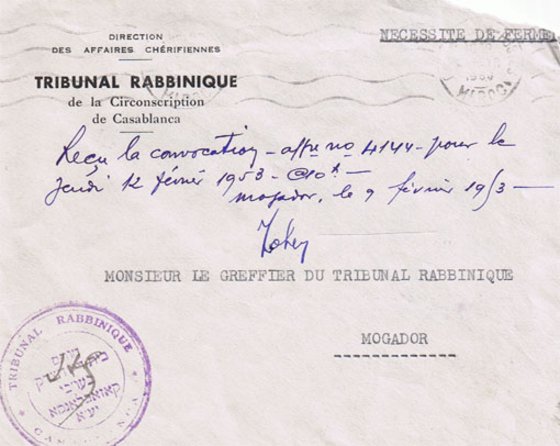 DIRECTION
DES AFFAIRES CHÉRIFIENNES
NECESSITE DE FERME
TRIBUNAL RABBINIQUE
de la Circonscription
de Casablanca
MAROC
Reçu la convocation - affre no 4144 - pour le
jeudi 12 février 1953 -
mogador, le 9 février 1953 -
MONSIEUR LE GREFFIER DU TRIBUNAL RABBINIQUE
MOGADOR
TRIBUNAL RABBINIQUE
יע״א